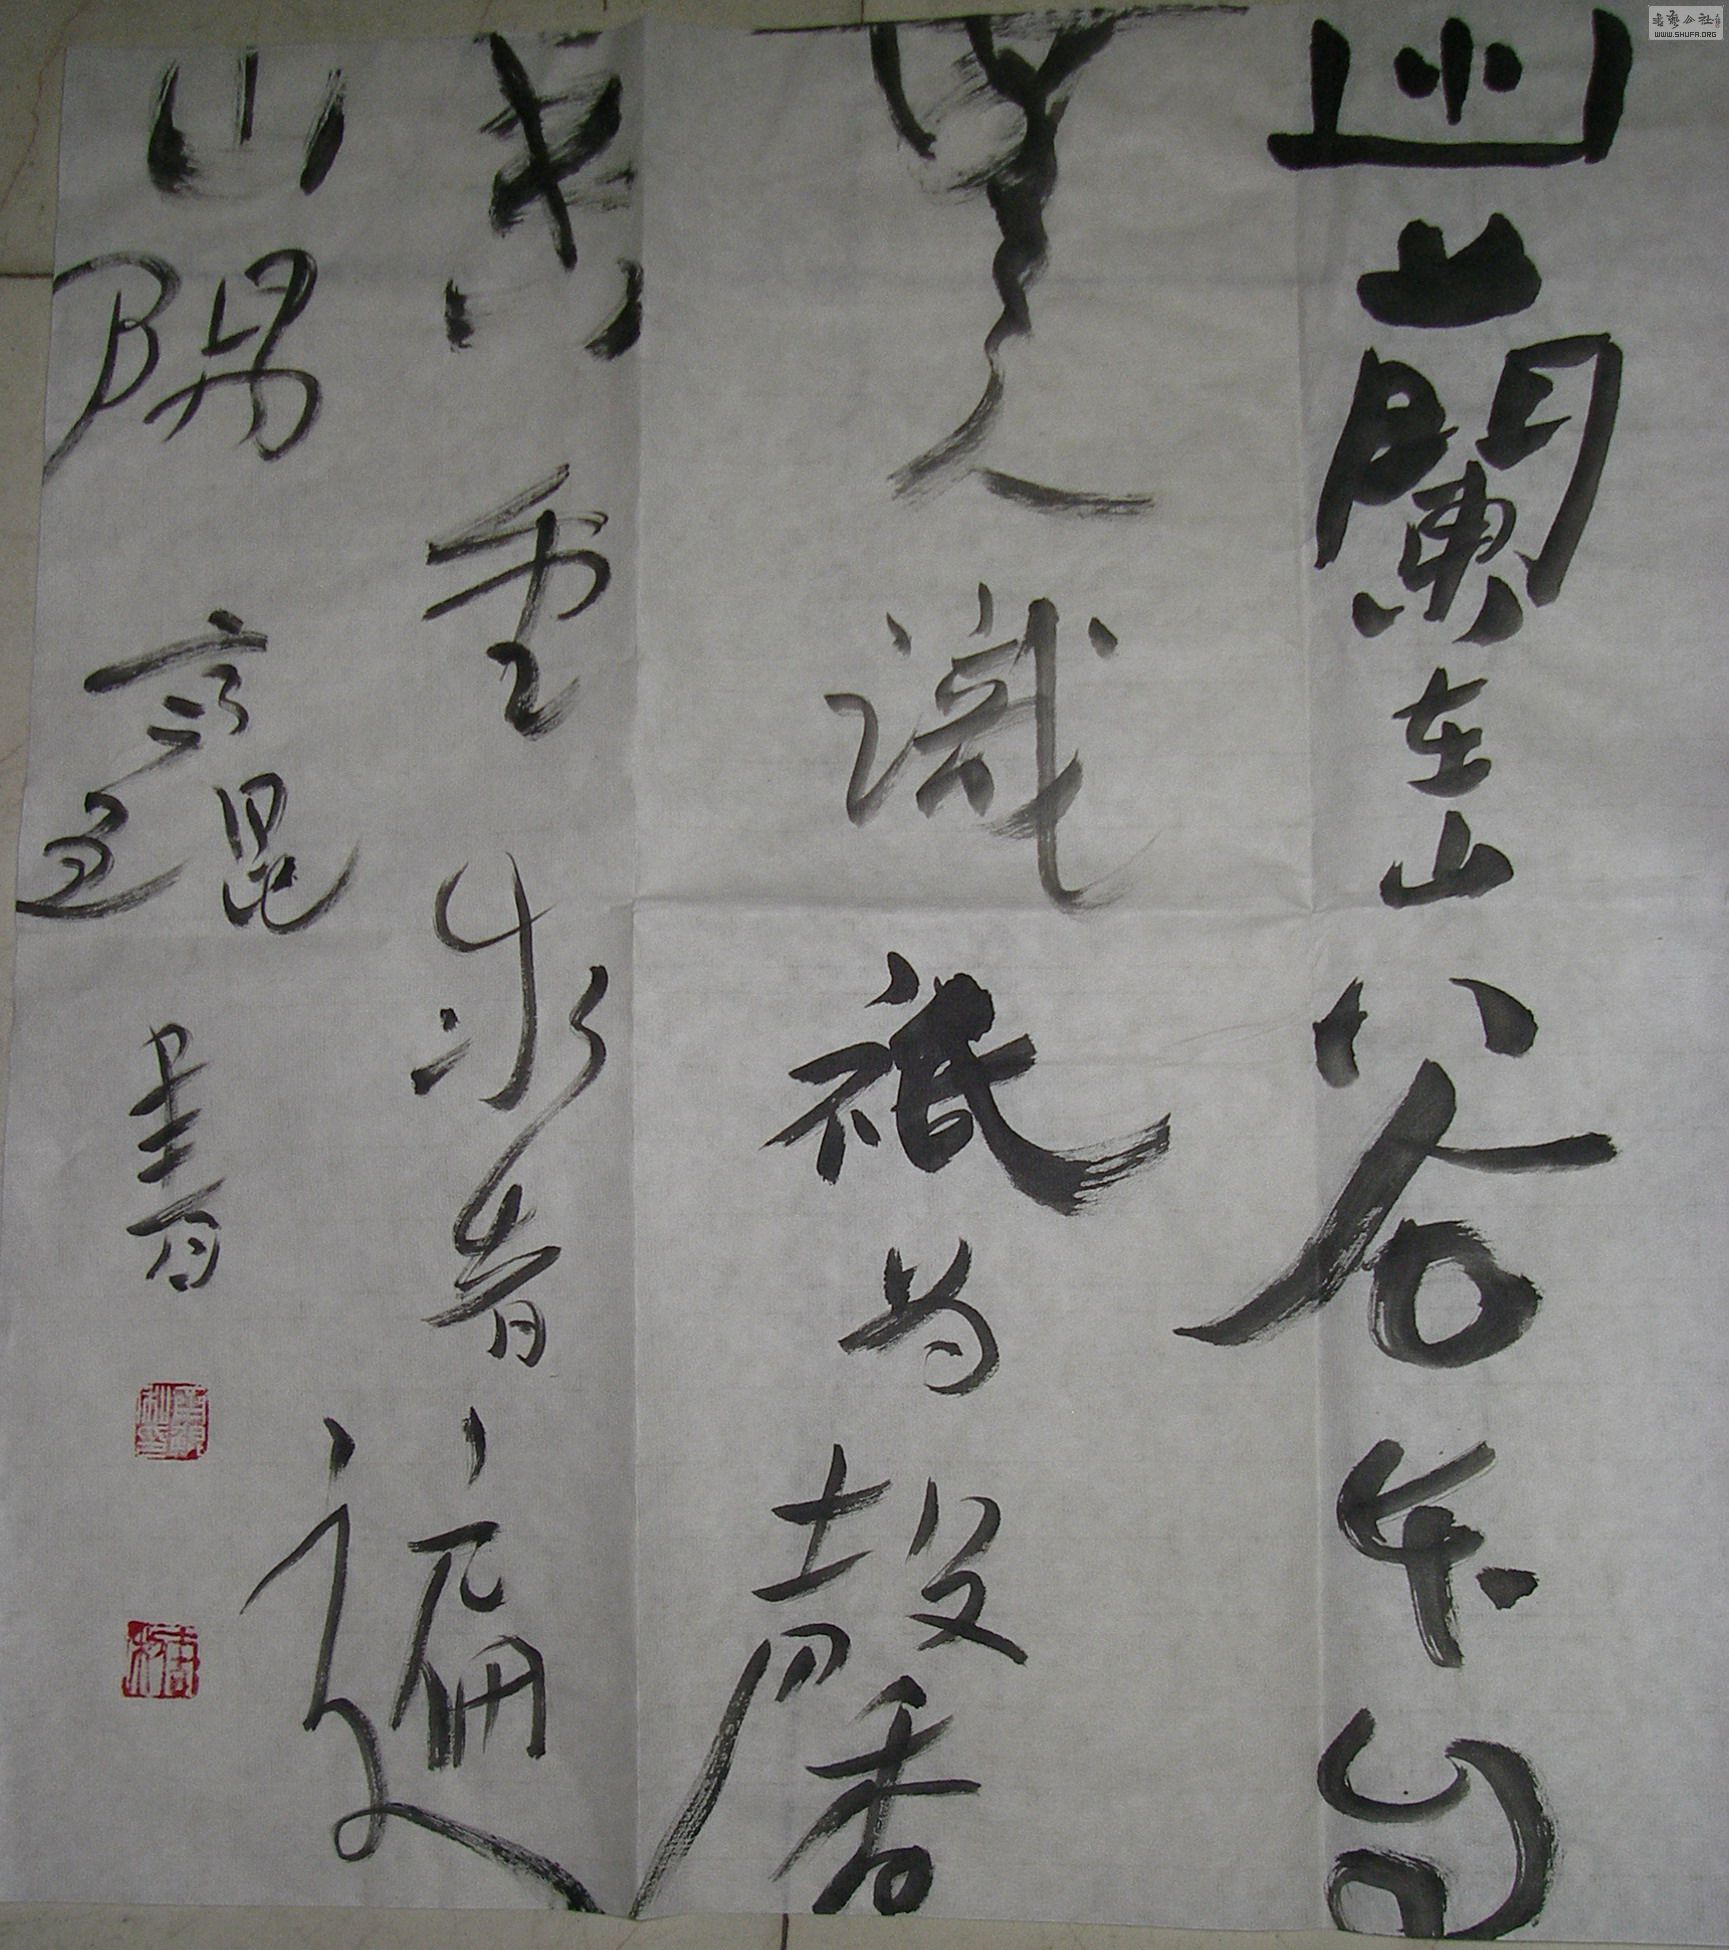 幽蘭在山谷本自
無人識祗為馨
香重求者遍
山隅 書
書藝公社
WWW.SHUFA.ORG